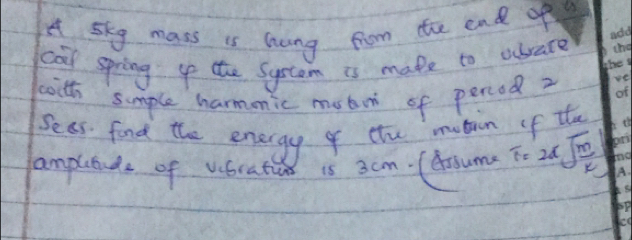 A 5kg mass is hung from the end of a
coil spring. if the system is made to vibrate
with simple harmonic motion of period 2
Secs. find the energy of the motion if the
amplitude of vibration is 3cm. (Assume T = 2π √m/k)
add
the
ve
of